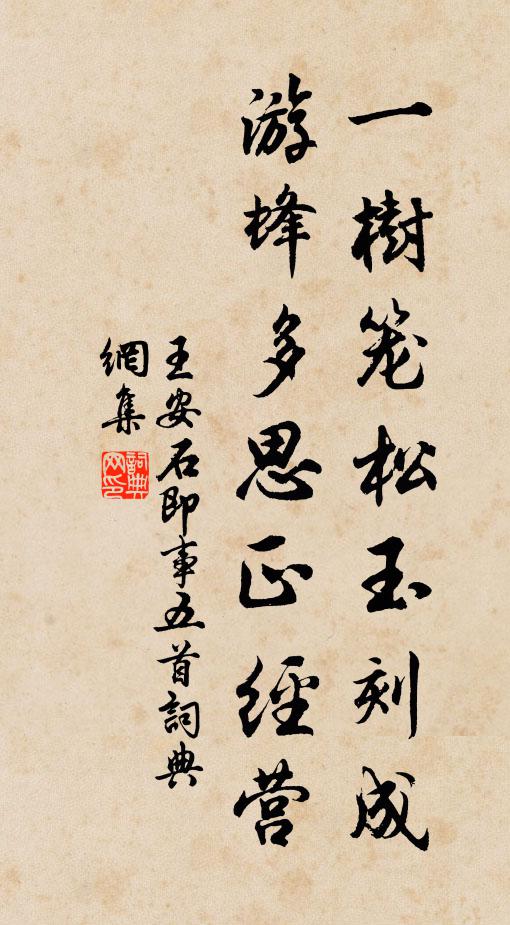 一樹笼松玉刻成
游蜂多思正經营
王安石即事五首詞典
網集
詞典网印